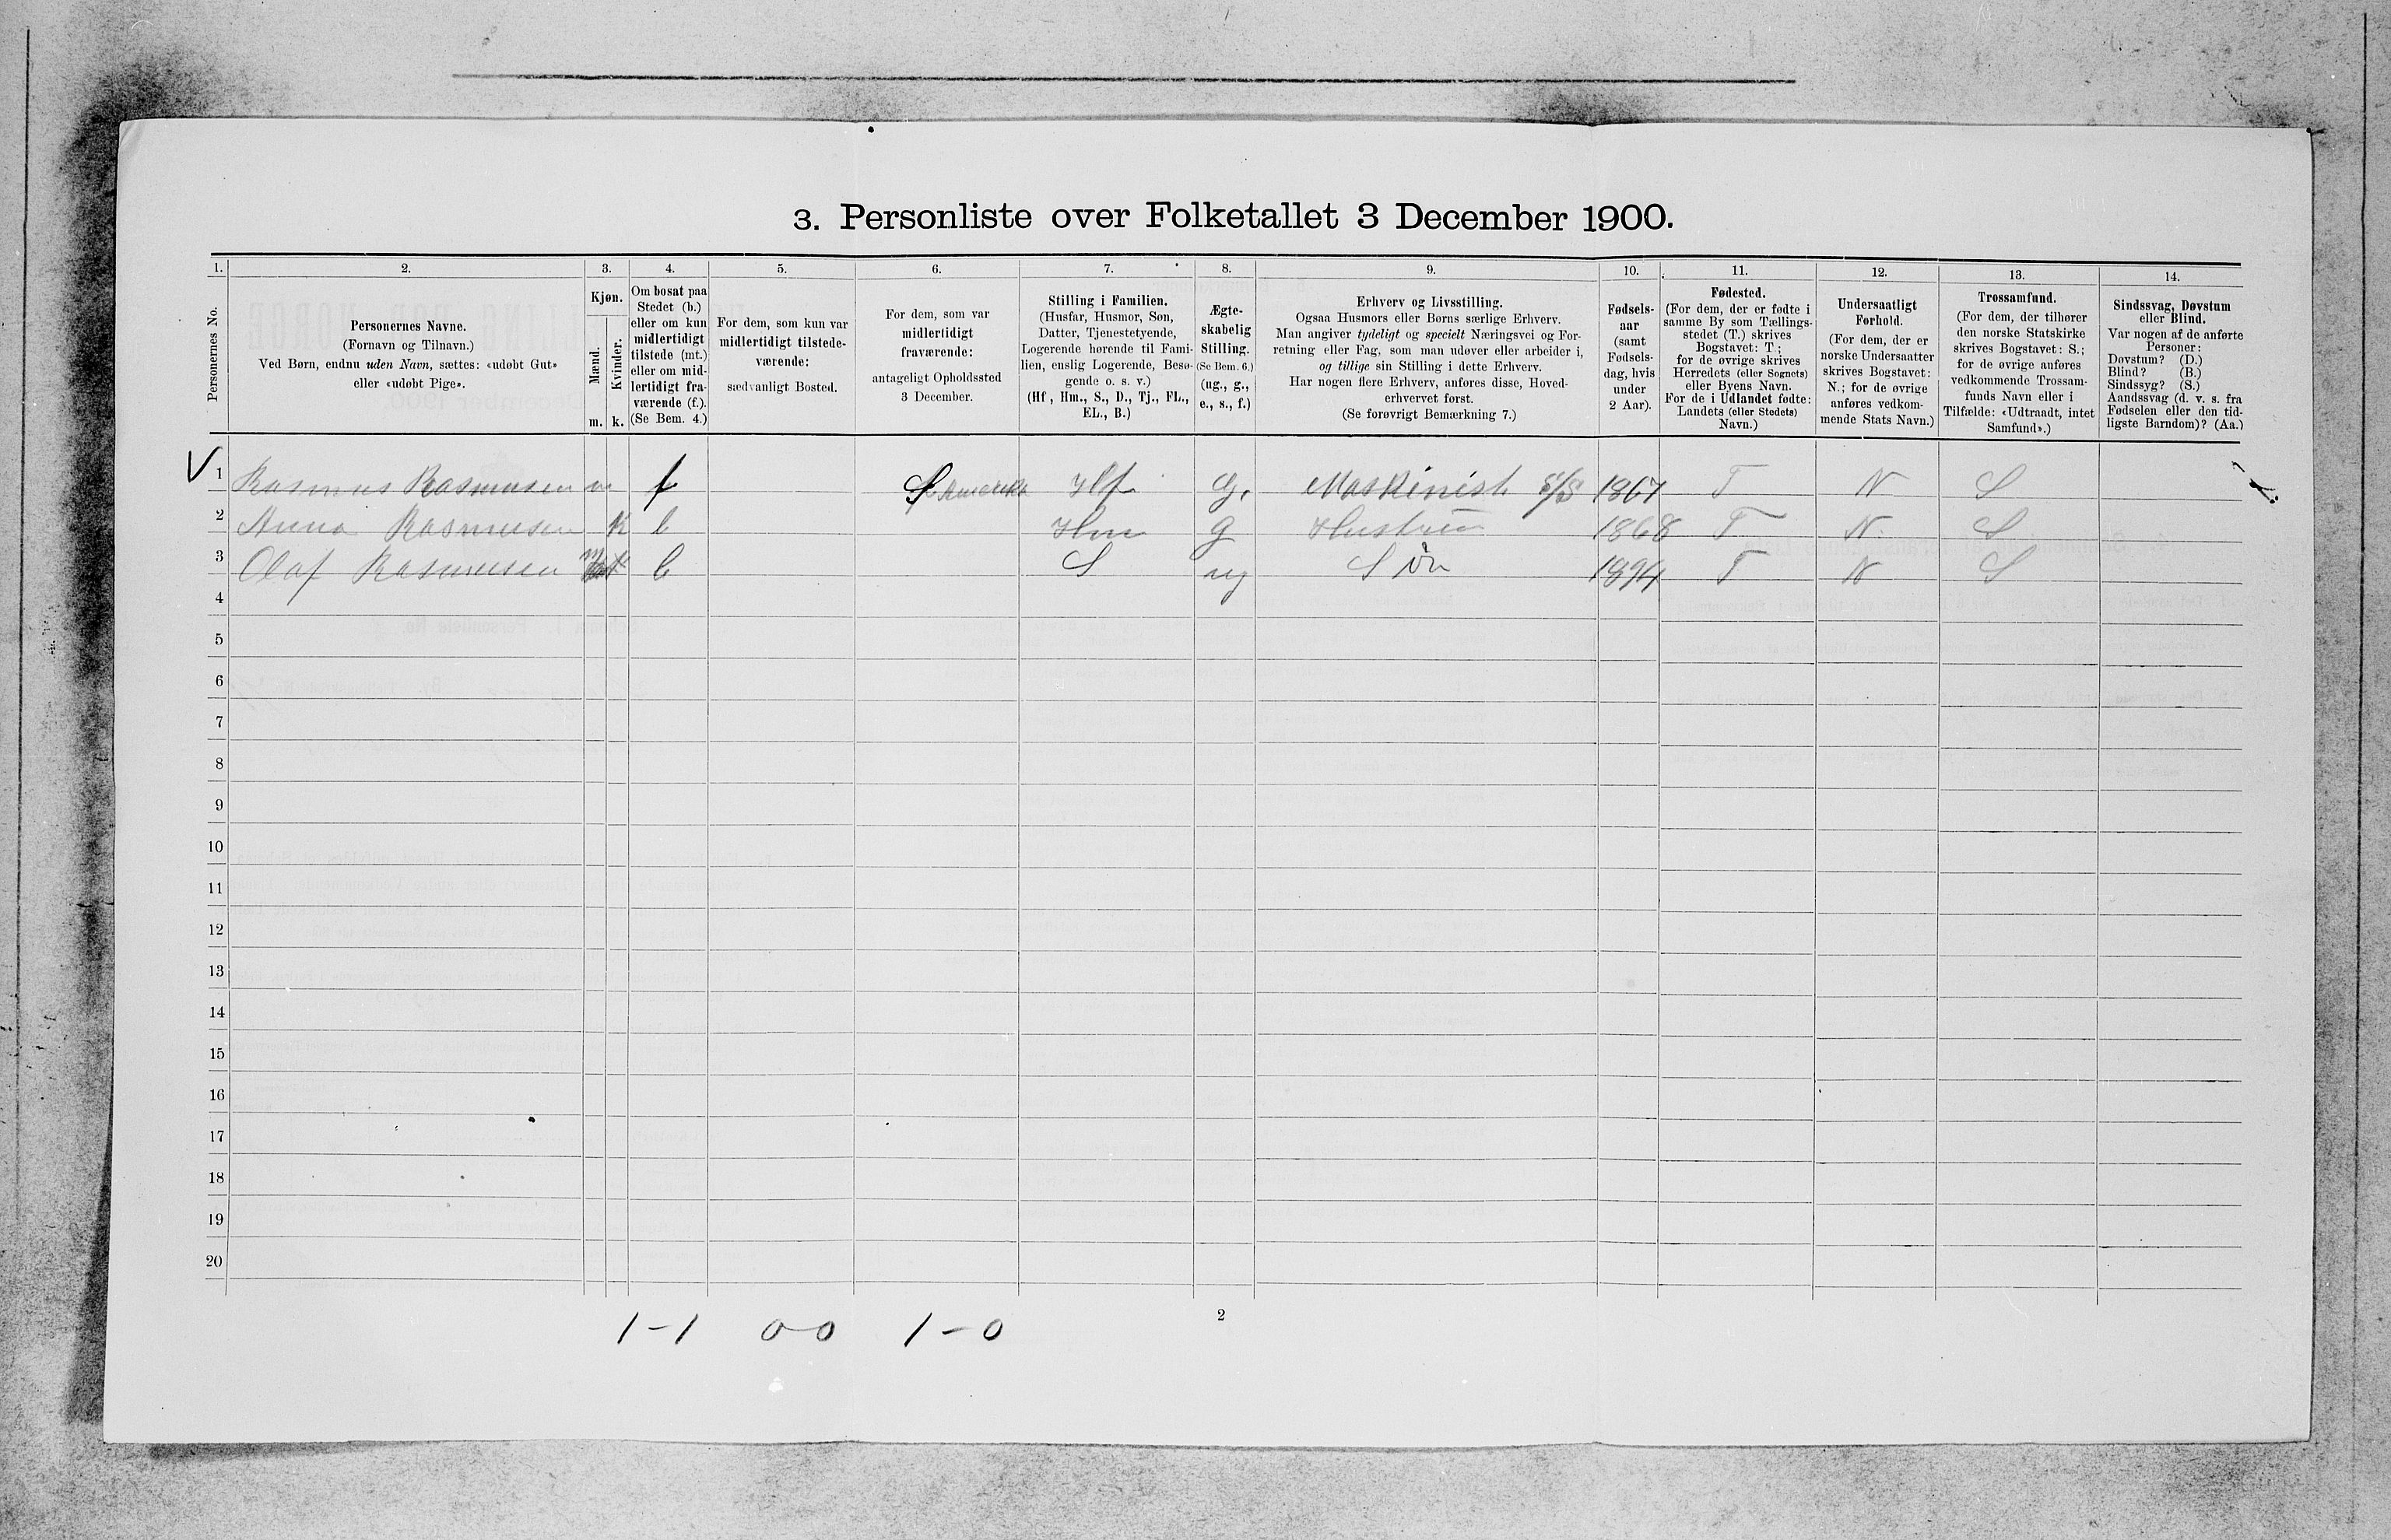 3. Personliste over Folketallet 3 December 1900.
1. 2. 3. 4. 5. 6. 7. 8. 9. 10. 11. 12. 13. 14.
Personernes No.
Personernes Navne.
(Fornavn og Tilnavn.)
Ved Børn, endnu uden Navn, sættes: «udøbt Gut»
eller «udøbt Pige».
Kjøn.
Mænd.
Kvinder.
m. k.
Om bosat paa
Stedet (b.)
eller om kun
midlertidigt
tilstede (mt.)
eller om mid-
lertidigt fra-
værende (f.).
(Se Bem. 4.)
For dem, som kun var
midlertidigt tilstede-
værende:
sædvanligt Bosted.
For dem, som var
midlertidigt
fraværende:
antageligt Opholdssted
3 December.
Stilling i Familien.
(Husfar, Husmor, Søn,
Datter, Tjenestetyende,
Logerende hørende til Fami-
lien, enslig Logerende, Besø-
gende o. s. v.)
(Hf., Hm., S., D., Tj., FL.,
EL., B.)
Ægte-
skabelig
Stilling.
(Se Bem. 6.)
(ug., g.,
e., s., f.)
Erhverv og Livsstilling.
Ogsaa Husmors eller Børns særlige Erhverv.
Man angiver tydeligt og specielt Næringsvei og For-
retning eller Fag, som man udøver eller arbeider i,
og tillige sin Stilling i dette Erhverv.
Har nogen flere Erhverv, anføres disse, Hoved-
erhvervet først.
(Se forøvrigt Bemærkning 7.)
Fødsels-
aar
(samt
Fødsels-
dag, hvis
under
2 Aar).
Fødested.
(For dem, der er fødte i
samme By som Tællings-
stedet (T.) skrives
Bogstavet: T;
for de øvrige skrives
Herredets (eller Sognets)
eller Byens Navn.
For de i Udlandet fødte:
Landets (eller Stedets)
Navn.)
Undersaatligt
Forhold.
(For dem, der er
norske Undersaatter
skrives Bogstavet:
N.; for de øvrige
anføres vedkom-
mende Stats Navn.)
Trossamfund.
(For dem, der tilhører
den norske Statskirke
skrives Bogstavet: S.;
for de øvrige anføres
vedkommende Trossam-
funds Navn eller i
Tilfælde: «Udtraadt, intet
Samfund».)
Sindssvag, Døvstum
eller Blind.
Var nogen af de anførte
Personer:
Døvstum? (D.)
Blind? (B.)
Sindssyg? (S.)
Aandssvag (d. v. s. fra
Fødselen eller den tid-
ligste Barndom)? (Aa.)
1 Rasmus Rasmusen m f Amerika Hf G. Maskinist S/S 1867 T N S
2 Anna Rasmusen K b Hm G Hustru 1868 T N. S
3 Olaf Rasmusen m b S ug Søn 1894 T N S
4
5
6
7
8
9
10
11
12
13
14
15
16
17
18
19
20
1-1 0-0 1-0 2